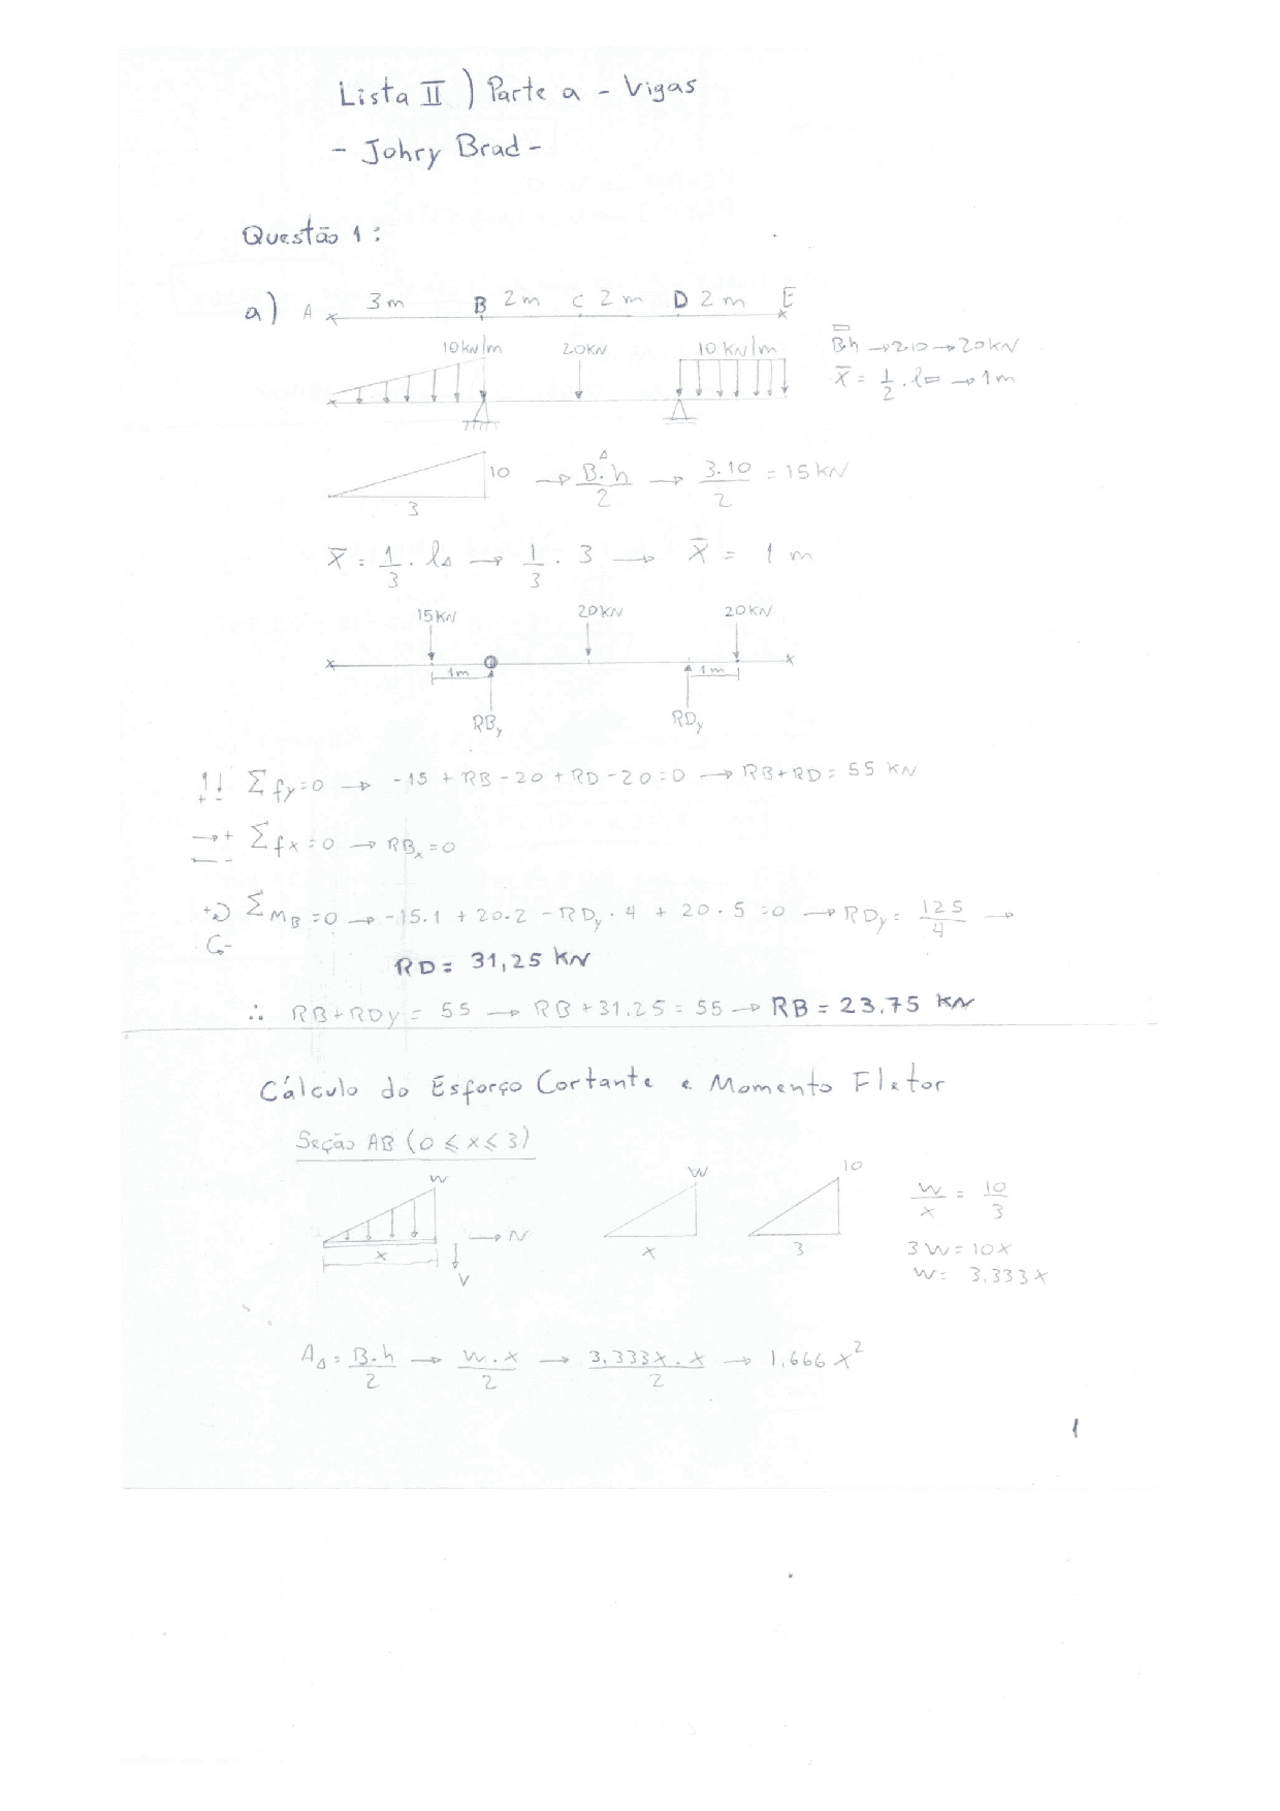 Lista II) Parte a - Vigas
- Johry Brad -
Questão 1:
a) A 3m B 2m C 2m D 2m E
10kN/m 20kN 10kN/m
B.h → 2.10 → 20kN
x̄ = 1/2 . l▭ → 1m
10
3
→ B.h/2 → 3.10/2 = 15kN
x̄ = 1/3 . l△ → 1/3 . 3 → x̄ = 1 m
15kN 20kN 20kN
1m 1m
RBy RDy
+ - Σfy=0 → -15 + RB - 20 + RD - 20 = 0 → RB+RD = 55 kN
→+ ←- Σfx=0 → RBx = 0
+ - ΣMB=0 → -15.1 + 20.2 - RDy . 4 + 20.5 = 0 → RDy = 125/4 →
RD = 31,25 kN
∴ RB+RDy = 55 → RB + 31.25 = 55 → RB = 23.75 kN
Cálculo do Esforço Cortante e Momento Fletor
Seção AB (0 ⩽ x ⩽ 3)
w x → N V
w x
10 3
w/x = 10/3
3w = 10x
w = 3.333x
A△ = B.h/2 → w.x/2 → 3.333x.x/2 → 1.666x²
1